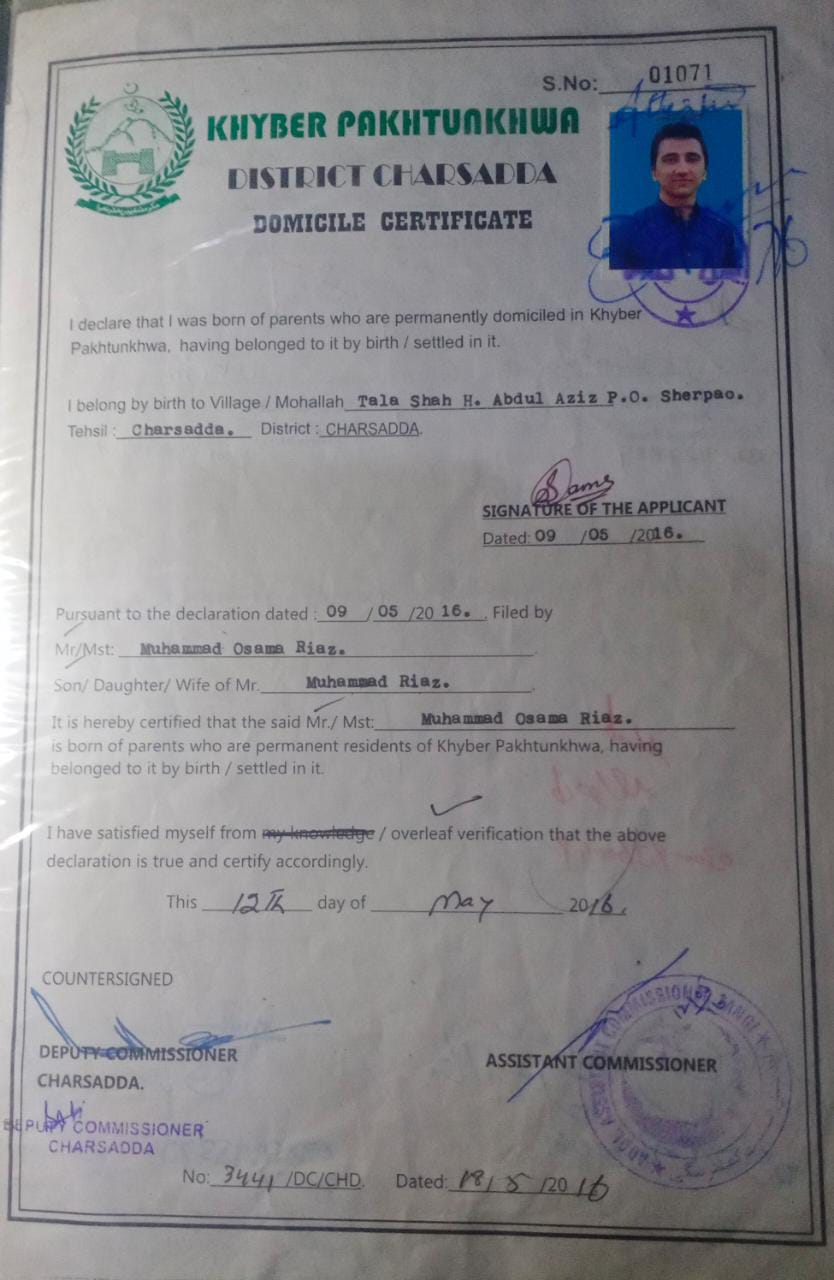 S.No: 01071
Attested
KHYBER PAKHTUNKHWA
DISTRICT CHARSADDA
DOMICILE CERTIFICATE
I declare that I was born of parents who are permanently domiciled in Khyber
Pakhtunkhwa, having belonged to it by birth / settled in it.
I belong by birth to Village / Mohallah Tala Shah H. Abdul Aziz P.O. Sherpao.
Tehsil : Charsadda. District : CHARSADDA.
SIGNATURE OF THE APPLICANT
Dated: 09 /05 /2016.
Pursuant to the declaration dated : 09 / 05 /20 16. Filed by
Mr/Mst: Muhammad Osama Riaz.
Son/ Daughter/ Wife of Mr. Muhammad Riaz.
It is hereby certified that the said Mr./ Mst: Muhammad Osama Riaz.
is born of parents who are permanent residents of Khyber Pakhtunkhwa, having
belonged to it by birth / settled in it.
I have satisfied myself from my knowledge / overleaf verification that the above
declaration is true and certify accordingly.
This 12th day of May 2016.
COUNTERSIGNED
DEPUTY COMMISSIONER
CHARSADDA.
ASSISTANT COMMISSIONER
DEPUTY COMMISSIONER
CHARSADDA
No: 3441 /DC/CHD. Dated: 18/5/2016